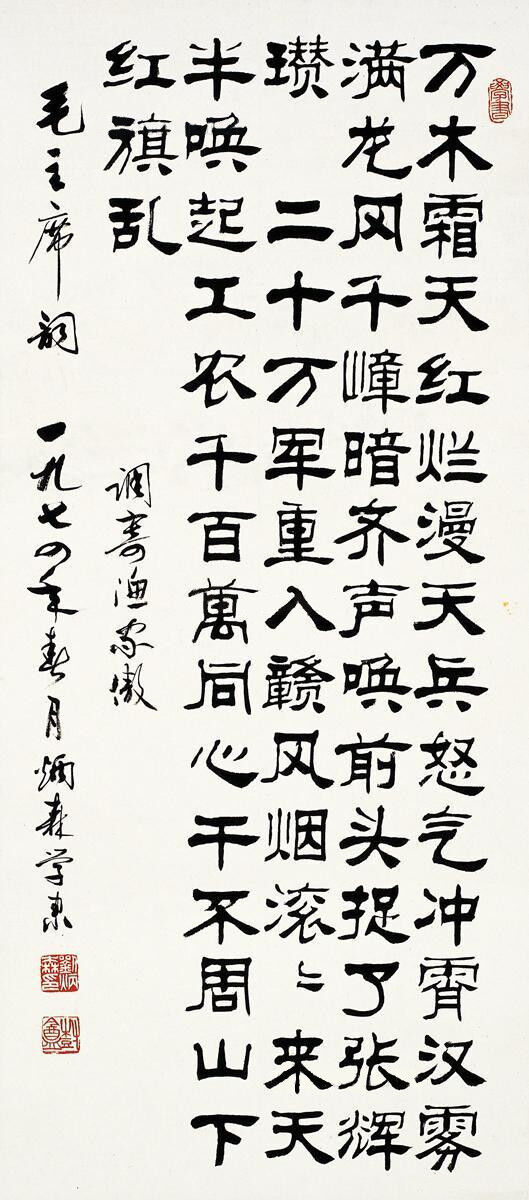 万木霜天红烂漫天兵怒气冲霄汉雾
满龙冈千嶂暗齐声唤前头捉了张辉
瓒 二十万军重入赣风烟滚〻来天
半唤起工农千百萬同心干不周山下
红旗乱
调寄渔家傲
毛主席词 一九七四年春月炳森学隶
劉炳森印